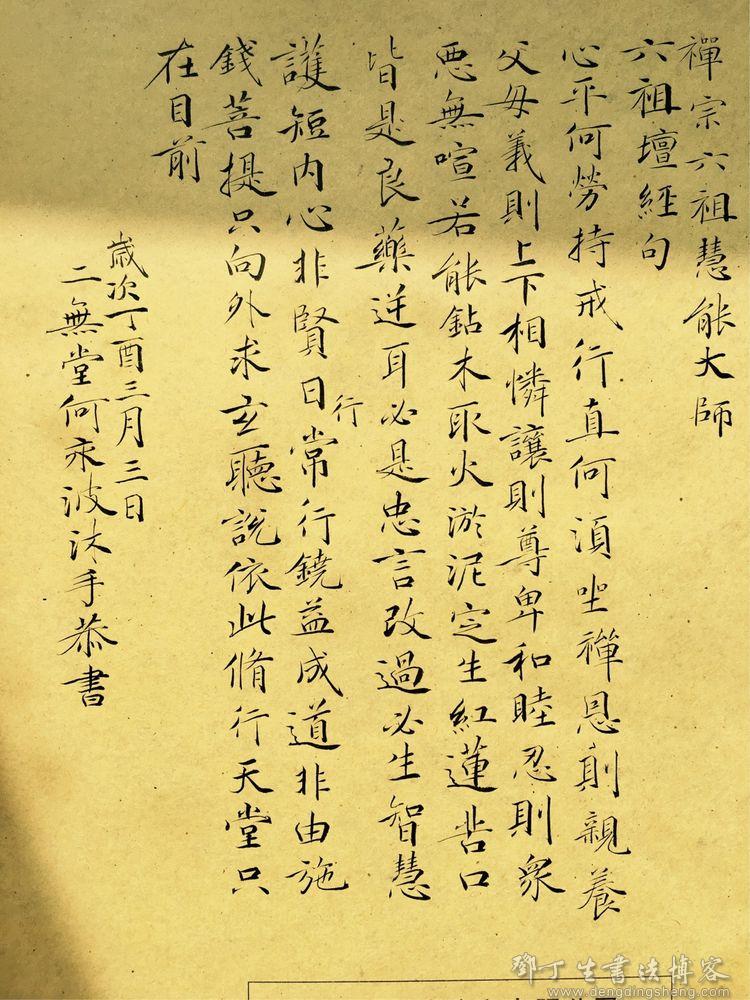 禪宗六祖慧能大師
六祖壇經句
心平何勞持戒行直何須坐禪恩則親養
父母義則上下相憐讓則尊卑和睦忍則衆
惡無喧若能鉆木取火淤泥定生紅蓮苦口
皆是良藥逆耳必是忠言改過必生智慧
行
護短內心非賢日常行鐃益成道非由施
錢菩提只向外求玄聽說依此脩行天堂只
在目前
歲次丁酉三月三日
二無堂何波沐手恭書
鄧丁生書法博客
www.dengdingsheng.com